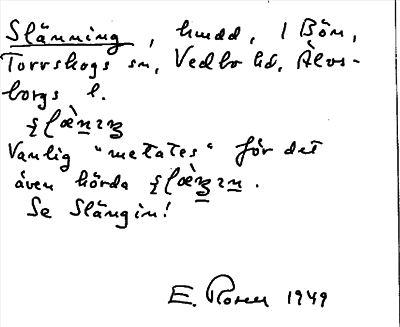 Slänning, hmdd, i Bön,
Torrskogs sn, Vedbo hd, Älvs-
borgs l.
Vanlig "metates" för det
även hörda
Se Slängin!
E. Rosen 1949